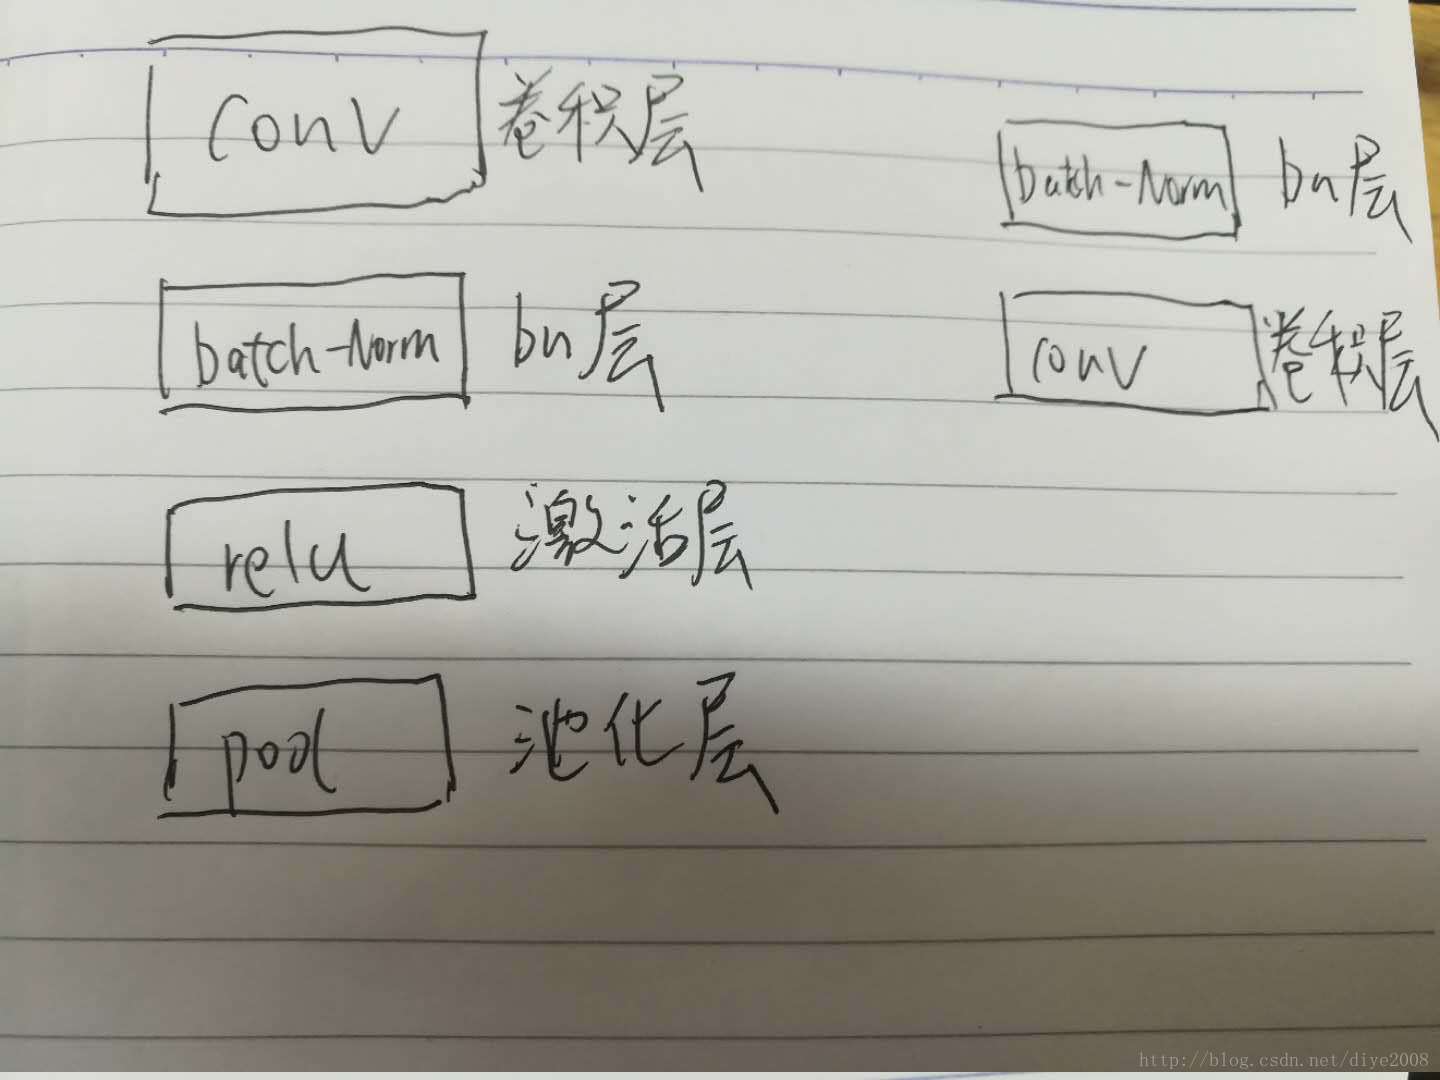 conv 卷积层
batch-Norm bn层
relu 激活层
pool 池化层
batch-Norm bn层
conv 卷积层
http://blog.csdn.net/diye2008